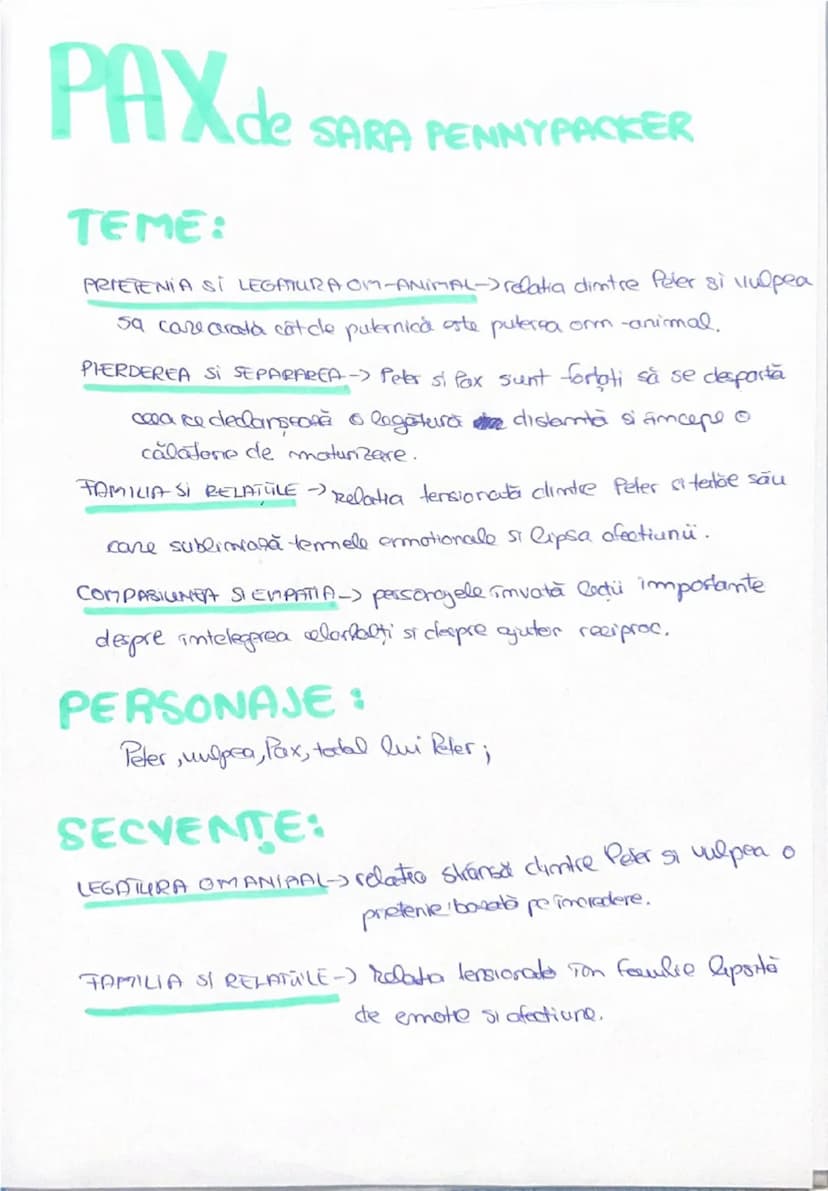 PAX de SARA PENNYPACKER
TEME:
PRIETENIA SI LEGATURA OM-ANIMAL -> relatia dintre Peter si vulpea
sa care arată cât de puternică este puterea om-animal.
PIERDEREA SI SEPARAREA -> Peter si Pax sunt fortați să se despartă
ceea ce declanșează o legătură distantă si începe o
călătorie de maturizare.
FAMILIA SI RELATIILE -> Relatia tensionată dintre Peter si tatăl său
care subliniază temele emotionale si lipsa afectiunii.
COMPASIUNEA SI EMPATIA -> personajele învată lectii importante
despre intelegerea celorlalți si despre ajutor reciproc.
PERSONAJE:
Peter, vulpea, Pax, tatal lui Peter;
SECVENȚE:
LEGATURA OM ANIMAL -> relatia strânsă dintre Peter si vulpea o
prietenie bazată pe incredere.
FAMILIA SI RELATIILE -> Relatia tensionată în familie lipsită
de emotie si afectiune.